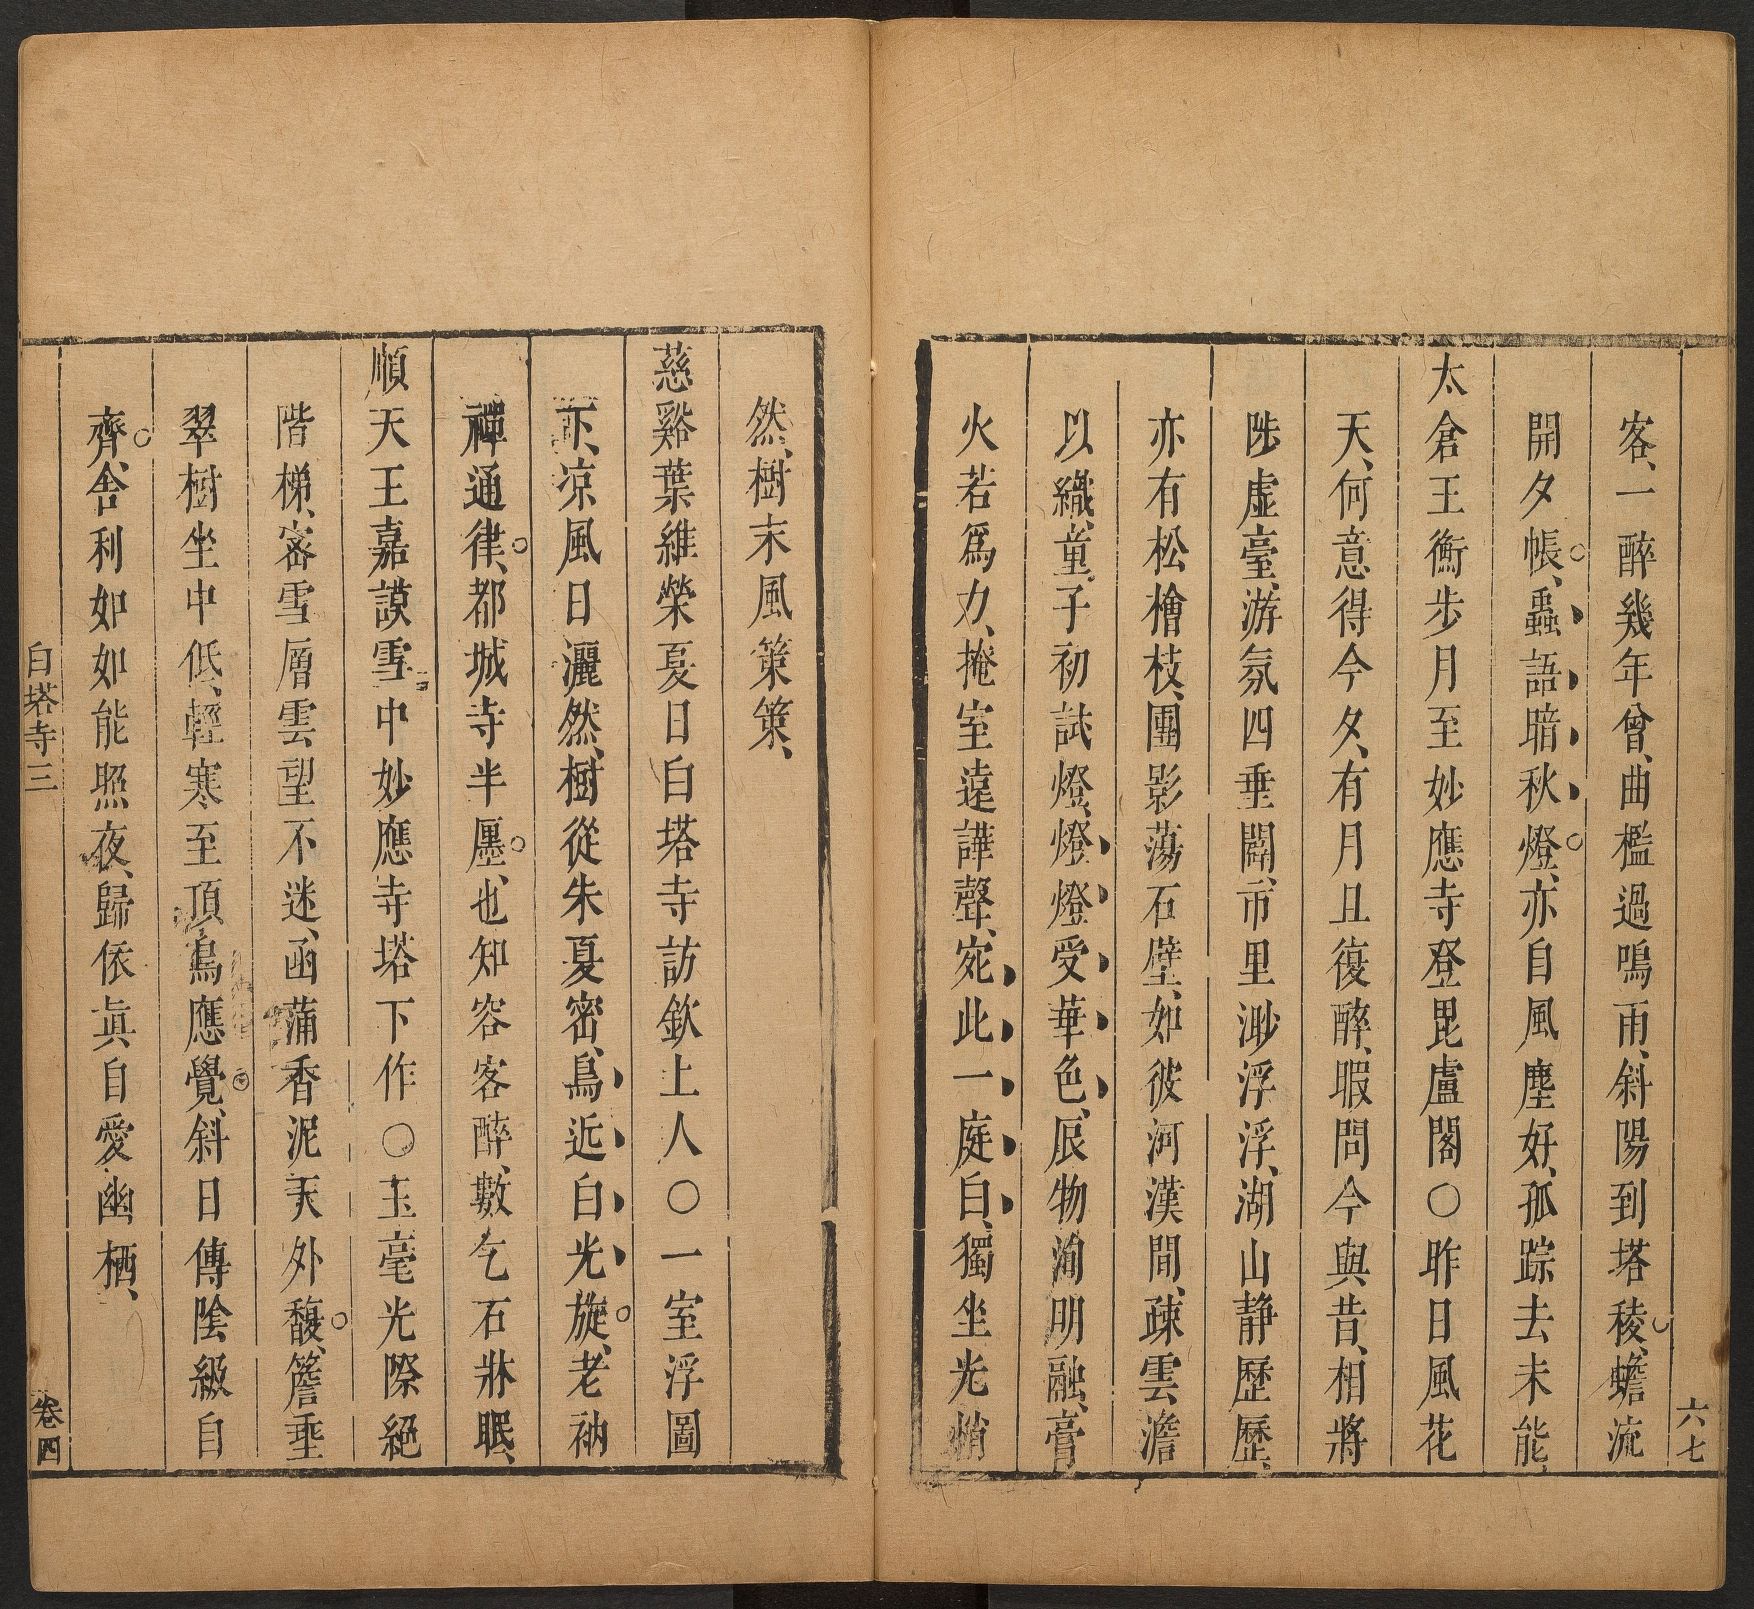 六七
客、一醉幾年曾、曲檻過鳴雨、斜陽到塔稜、蟾流
開夕帳、蟲語暗秋燈、亦自風塵好、孤踪去未能、
太倉王衡步月至妙應寺登毘盧閣○昨日風花
天、何意得今夕、有月且復醉、暇問今與昔、相將
陟虛臺、游氛四垂闢、市里渺浮浮、湖山靜歷歷、
亦有松檜枝、團影蕩石壁、如彼河漢間、疎雲澹
以織、童子初試燈、燈燈受華色、辰物洵明融、膏
火若爲力、掩室遠譁聲、宛此一庭白、獨坐光悄
然、樹末風策策、
慈谿葉維榮夏日白塔寺訪欽上人○一室浮圖
下、凉風日灑然、樹從朱夏密、鳥近白光旋、老衲
禪通律、都城寺半廛、也知容客醉、數乞石牀眠、
順天王嘉謨雪中妙應寺塔下作○玉毫光際絕
階梯、密雪層雲望不迷、函蒲香泥天外馥、簷垂
翠樹坐中低、輕寒至頂鳥應覺、斜日傳陰級自
齊、舍利如如能照夜、歸依眞自愛幽栖、
白塔寺三
卷四